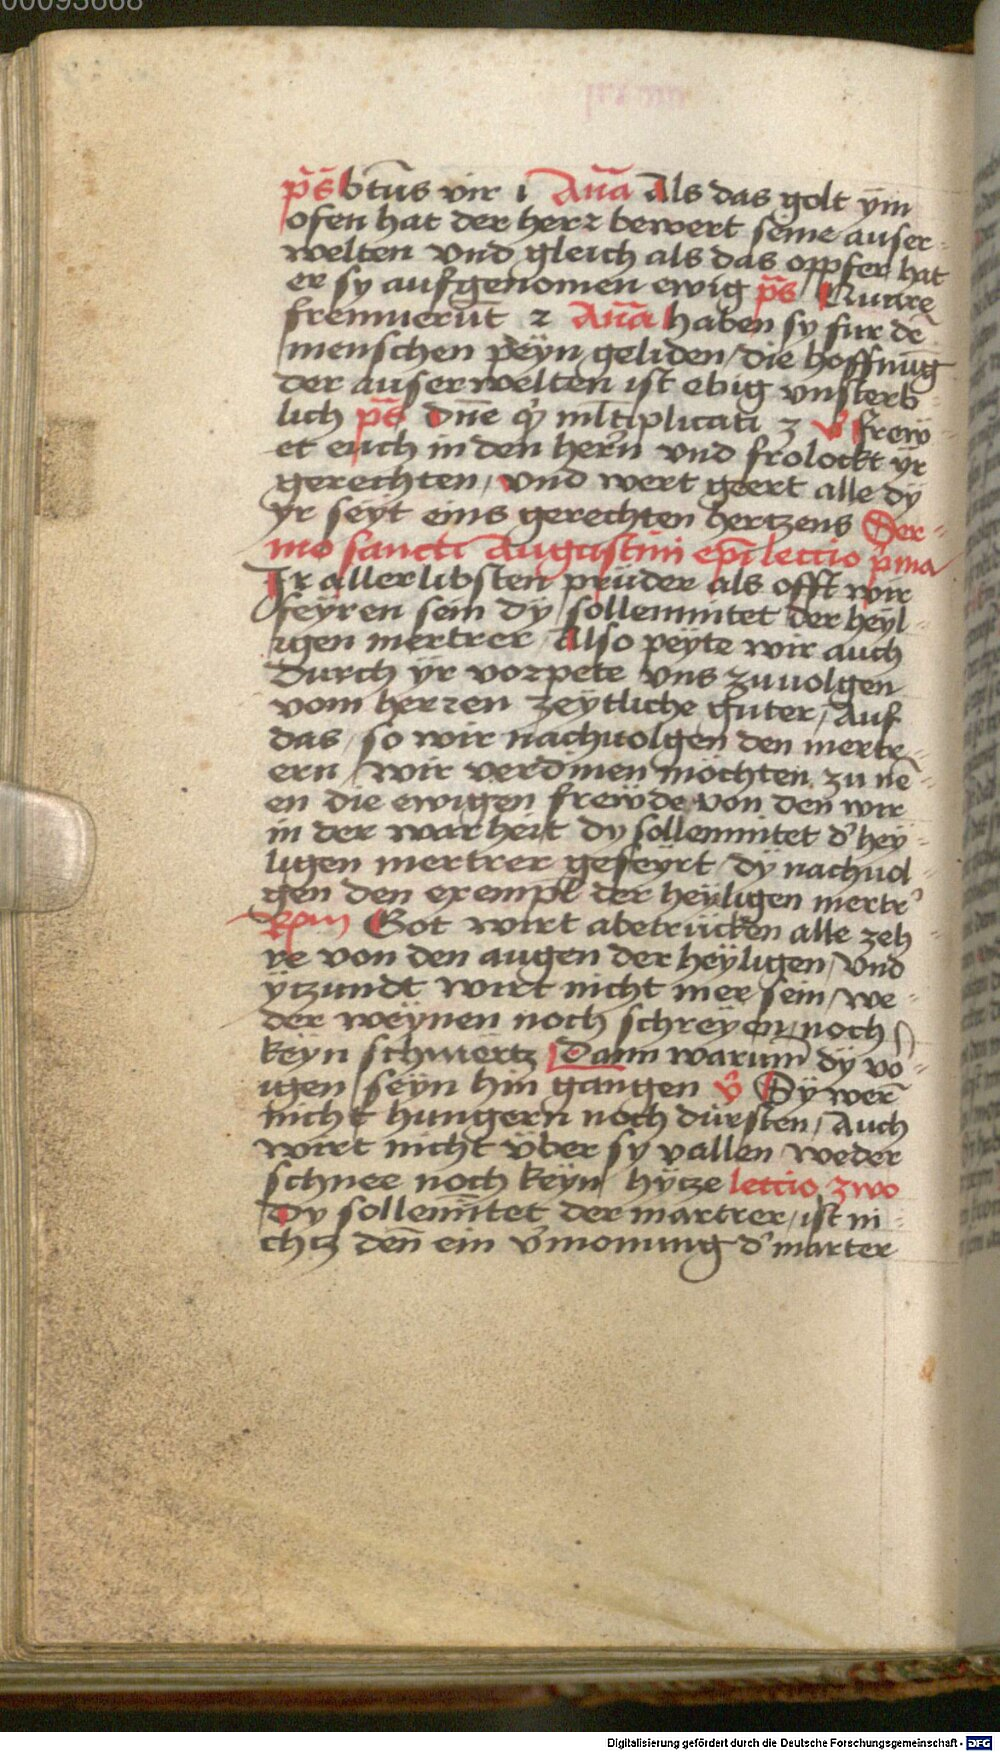 00093668
p̄s̄ btūs vir 1 An̄a Als das golt ÿm
ofen hat der herꝛ bewert seine auser-
welten vnd gleich als das oppfer hat
er sy aufgenomen ewig p̄s̄ Quare
fremuerūt 2 An̄a haben sy fur dē
menschen peÿn geliden / die hoffnūg
der auserwelten ist ebig vnsterb-
lich p̄s̄ Dn̄e q̇ ml̄tiplicati 3 v̓ frew-
et euch in den hern̄ vnd frolockt ÿr
gerechten / vnd wert geert alle dÿ
ÿr seÿt eins gerechten hertzens Ser-
mo sancti Augustini ep̄i lectio p̓ma
Ir allerlibsten prüder als offt wir
feÿren sein dÿ sollemnitet der heÿl-
igen mertrer Also peyte wir auch
durch ÿr vorpete vns zuuolgen
vom herꝛen zeÿtliche guter / Auf
das / so wir nachuolgen den mertr-
ern / wir verdinen möchten zu nē-
en die ewigen freẅde von den wir
in der warheit dy sollemnitet d̓ heÿ-
ligen mertrer gefeyrt / dÿ nachuol-
gen den exempl̄ der heÿligen mertr̓
Rpm Got wirt abetrücken alle zeh-
re von den augen der heÿligen / vnd
ÿtzundt wirt nicht mer sein / we-
der weÿnen noch schreÿen / noch
keÿn schmertz Dann warum̄ dÿ vo-
rigen seÿn hin gangen v̓ Sÿ wer̄
nicht hungern noch dürsten / Auch
wirt nicht v̈ber sy vallen weder
schnee noch keÿn hÿtze lectio zwo
Dy sollem̄itet der martrer / ist ni-
chtz den̄ ein v̓monung d̓ marter
Digitalisierung gefördert durch die Deutsche Forschungsgemeinschaft - DFG